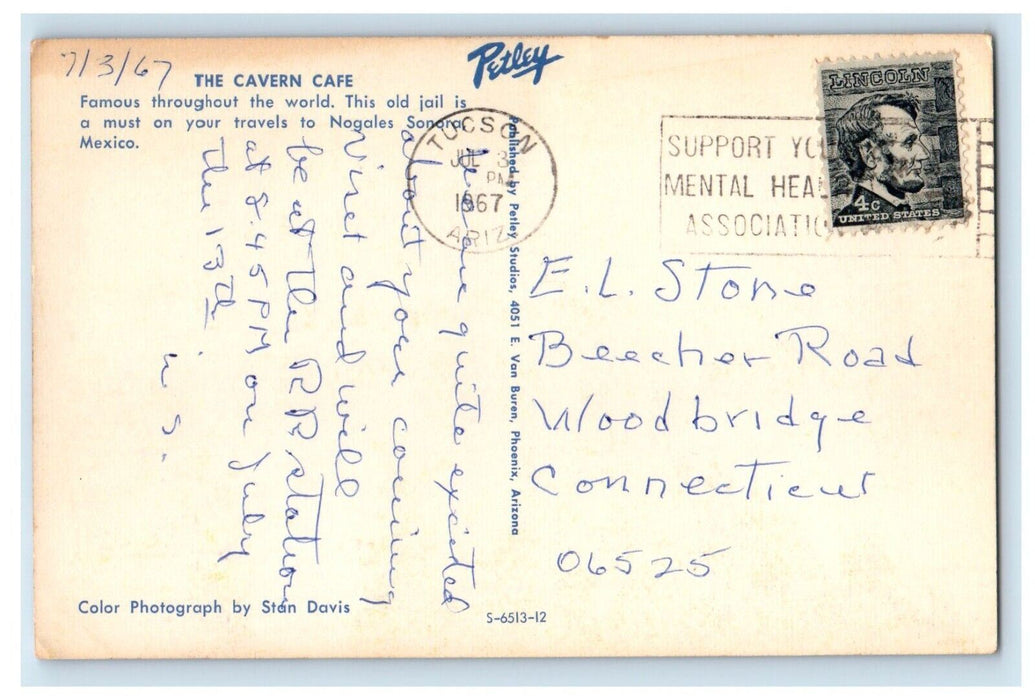 7/3/67
THE CAVERN CAFE
Famous throughout the world. This old jail is
a must on your travels to Nogales Sonora
Mexico.
Petley
TUCSON
JUL 3
PM
1967
ARIZ.
SUPPORT YO
MENTAL HEA
ASSOCIATIO
LINCOLN
4c
UNITED STATES
we are quite excited
about your coming
visit and will
be at the RR station
at 8:45 PM on July
the 13th.
w s.
Published by Petley Studios, 4051 E. Van Buren, Phoenix, Arizona
E.L. Stone
Beecher Road
Woodbridge
Connecticut
06525
Color Photograph by Stan Davis
S-6513-12